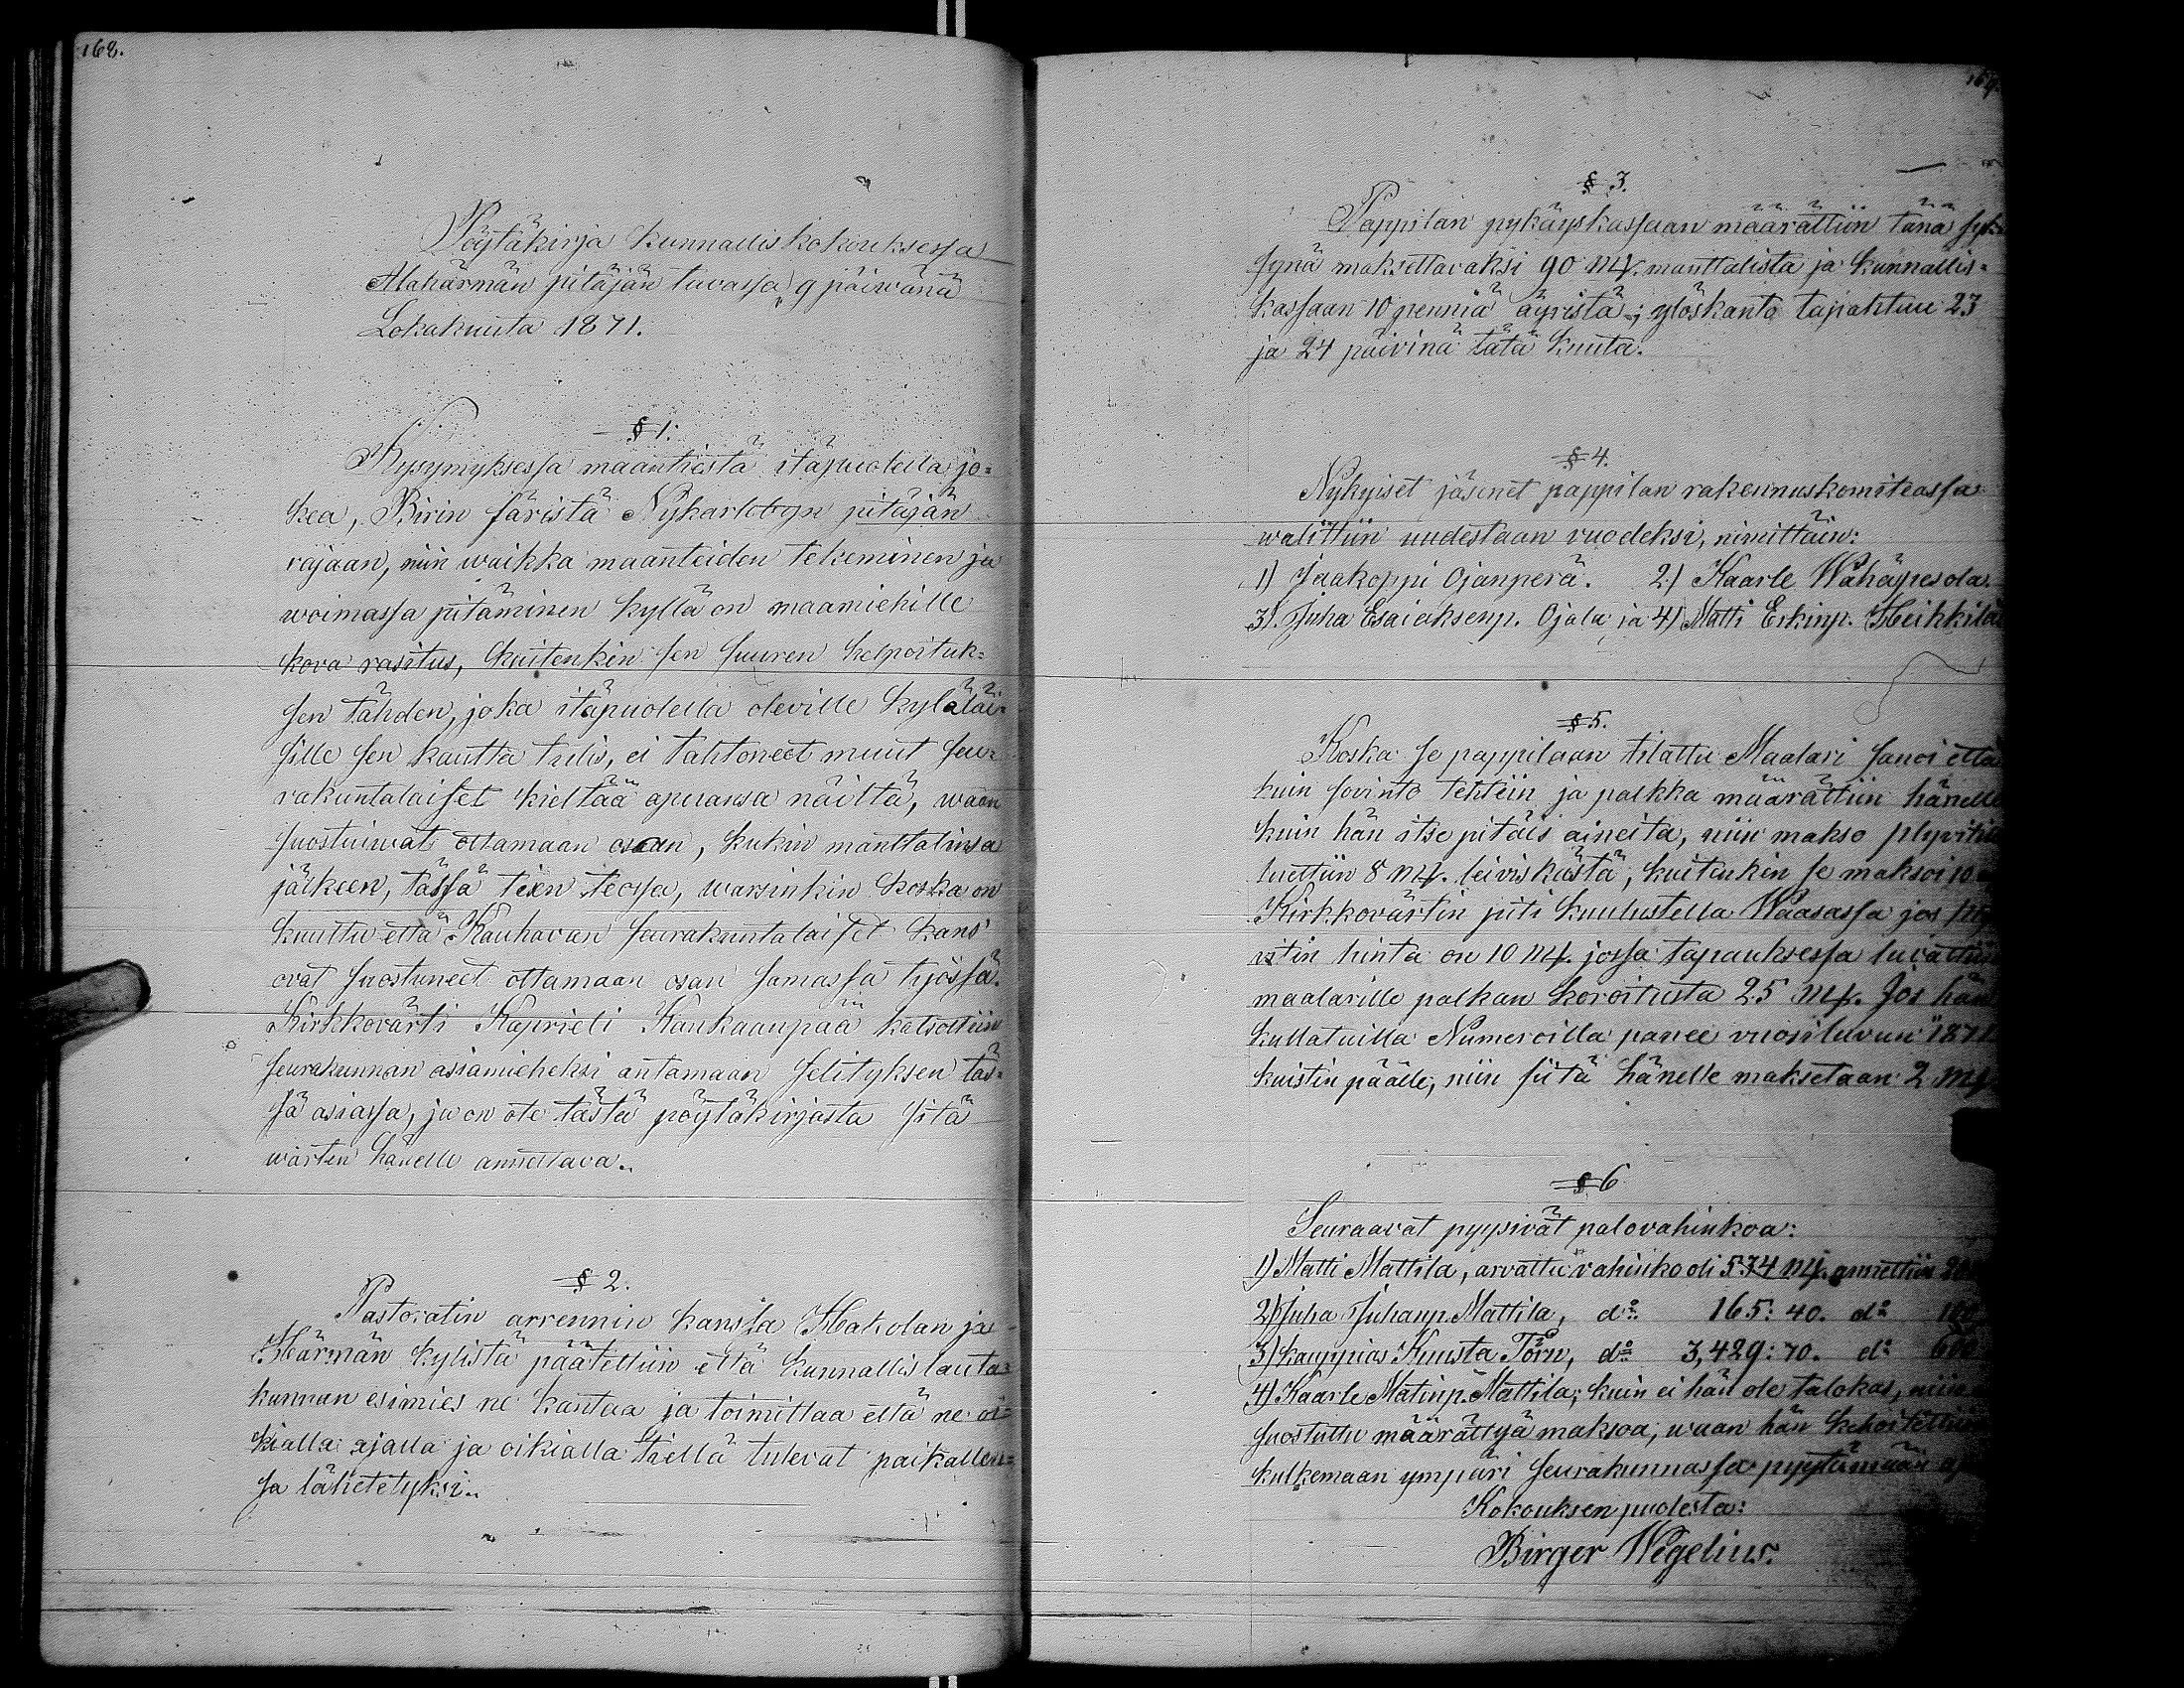 168.
Pöytäkirja kunnalliskokouksessa
Alahärmän pitäjän tuvassa 9 päiwänä
Lokakuuta 1871.
§ 1.
Kysymyksessa maantiestä itäpuolella jo=
kea, Birin färistä Nykarlebyn pitäjän
rajaan, niin waikka maanteiden tekeminen ja
woimassa pitäminen kyllä on maamiehille
kova rasitus, kuitenkin sen suuren helpoituk=
sen tähden, joka itäpuolella oleville kyläläi=
sille sen kautta tulis, ei tahtoneet muut seu=
rakuntalaiset kieltää apuansa näiltä, waan
suostuiwat ottamaan osaan, kukin manttalinsa
jälkeen, tässä tien teossa, warsinkin koska on
kuultu että Kauhavan seurakuntalaiset kans'
ovat suostuneet ottamaan osan samassa työssä.
Kirkkovärti Kaprieli Kankaanpää katsottiin
seurakunnan asiamieheksi antamaan selityksen täs=
sä asiassa, ja on ote tästä pöytäkirjasta sitä
wärten hänelle annettava.
§ 2.
Pastoratin arrennin kanssa Hakolan ja
Härmän kylistä päätettiin että kunnallislauta=
kunnan esimies ne kantaa ja toimittaa että ne oi=
kialla ajalla ja oikialla tiellä tulevat paikallen=
sa lähetetyksi.
169.
§ 3.
Pappilan pykäyskassaan määrättiin tänä syk=
synä maksettavaksi 90 mk. manttalista ja kunnallis=
kassaan 10 penniä äyristä; ylöskanto tapahtuu 23
ja 24 päivinä tätä kuuta.
§ 4.
Nykyiset jäsenet pappilan rakennuskomiteassa
walittiin uudestaan vuodeksi, nimittäin:
1) Jaakoppi Ojanperä. 2) Kaarle Wähäpesola
3). Juha Esaiaksenp. Ojala ja 4) Matti Erkinp. Heikkilä
§ 5.
Koska se pappilaan tilattu Maalari sanoi että
kuin sovinto tehtiin ja palkka määrättiin hänelle
kuin hän itse pitäis aineita, niin makso
luettiin 8 mk. leiviskästä, kuitenkin se maksoi 10
Kirkkovärtin piti kuulustella Waasassa jos
hinta on 10 mk. jossa tapauksessa luvattiin
maalarille palkan koroitusta 25 mk. Jos hän
kullatuilla Numeroilla panee vuosiluvun "1871
kuistin päälle, niin siitä hänelle maksetaan 2 mk
§ 6
Seuraavat pyysivät palovahinkoa:
1) Matti Mattila, arvattu vahinko oli 574 mk. annettiin
2) Juha Juhanp. Mattila, do 165: 40. do 100
3) kauppias Kuusta Törn, do 3,429: 70. do 600
4) Kaarle Matinp. Mattila; kuin ei hän ole talokas, niin
suostuttu määrättyä maksoa, waan hän kehoitettiin
kulkemaan ympäri seurakunnassa pyytämään
Kokouksen puolesta:
Birger Wegelius.